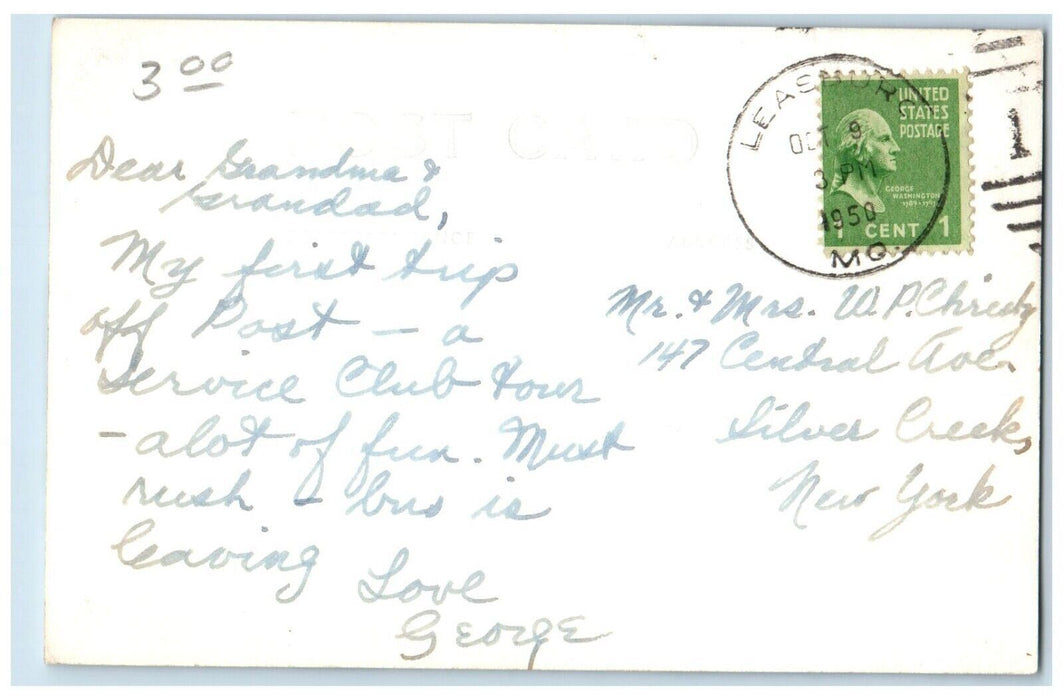 3 00
POST CARD
LEASBURG
OCT 9
3 PM
1950
MO.
UNITED
STATES
POSTAGE
GEORGE
WASHINGTON
1 CENT 1
Dear Grandma &
Grandad,
My first trip
off Post - a
Service Club tour
- alot of fun. Must
rush - bus is
leaving
Love
George
Mr. & Mrs. W. P. Christy
147 Central Ave.
Silver Creek,
New York